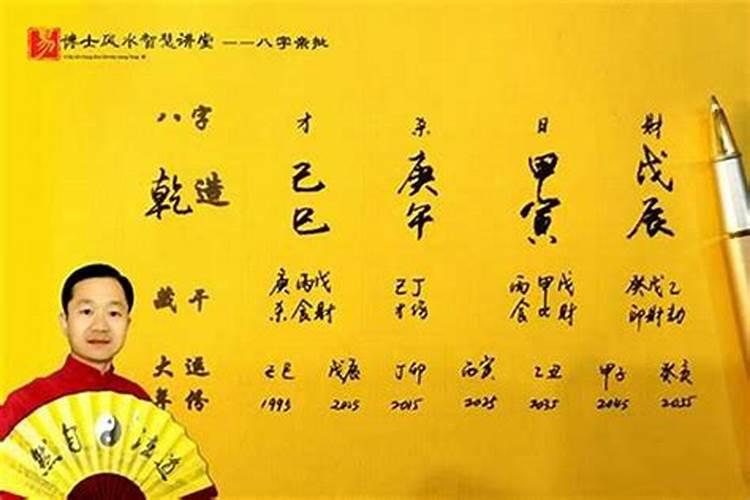 易 博士风水智慧讲堂 ——八字亲批
八字 才 杀 日 财
乾造 己巳 庚午 甲寅 戊辰
藏干 庚丙戊 己丁 丙甲戊 癸戊乙
杀食财 才伤 食比财 印财劫
大运 己巳 戊辰 丁卯 丙寅 乙丑 甲子 癸亥
年份 1995 2005 2015 2025 2035 2045 2055
道法自然